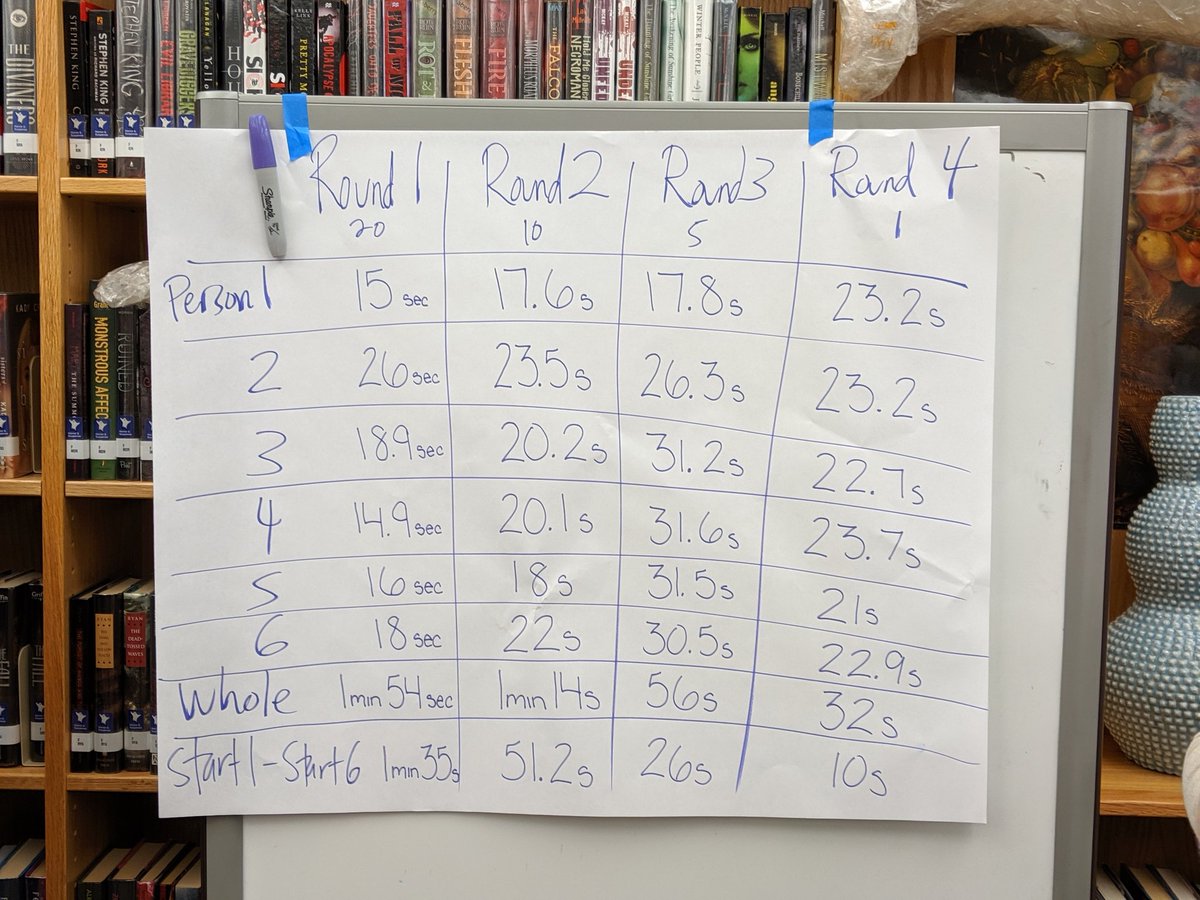 THE DIVINERS
STEPHEN KING
STEPHEN KING
STEPHEN KING
PRETTY
ROT &
FLESH
FIRE
FALCO
WINTER PEOPLE
MONSTROUS AFFEC
RUINED
THE SUMM
RYAN
RYAN
THE DEAD-TOSSED WAVES
Sharpie
Round 1 Round 2 Round 3 Round 4
20 10 5 1
Person 1 15 sec 17.6s 17.8s 23.2s
2 26 sec 23.5s 26.3s 23.2s
3 18.9 sec 20.2s 31.2s 22.7s
4 14.9 sec 20.1s 31.6s 23.7s
5 16 sec 18s 31.5s 21s
6 18 sec 22s 30.5s 22.9s
Whole 1min 54sec 1min 14s 56s 32s
Start 1 - Start 6 1min 35s 51.2s 26s 10s